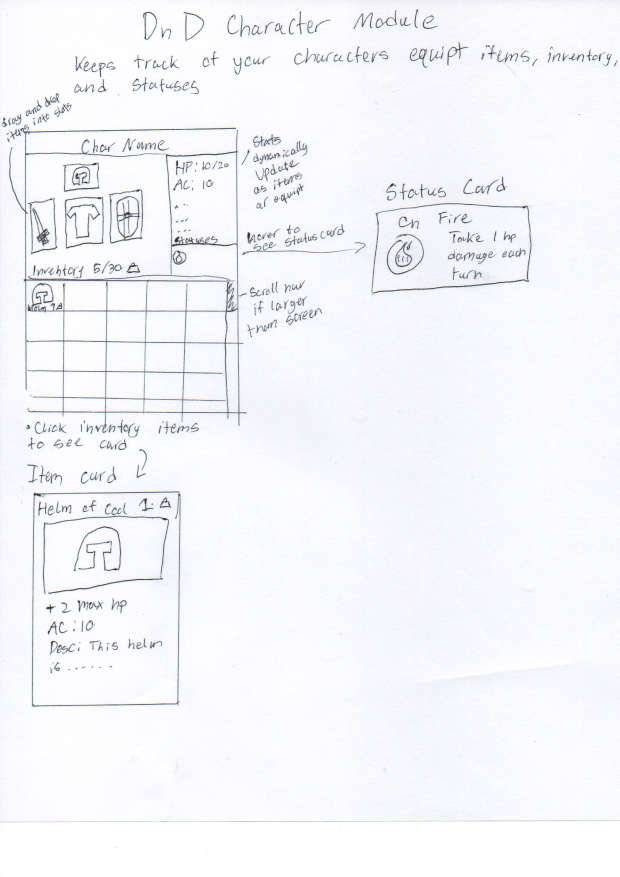 DnD Character Module
Keeps track of your characters equipt items, inventory,
and statuses
drag and drop
items into slots
Char Name
HP: 10/20
AC: 10
...
...
...
Statuses
Stats
dynamically
Update
as items
ar equipt
Hover to
see status card
Status Card
On Fire
Take 1 hp
damage each
turn
Inventory 5/30
Helm 1
- Scroll bar
if larger
than screen
• Click inventory items
to see card
Item card
Helm of Cool 1
+ 2 max hp
AC: 10
Desc: This helm
is ......